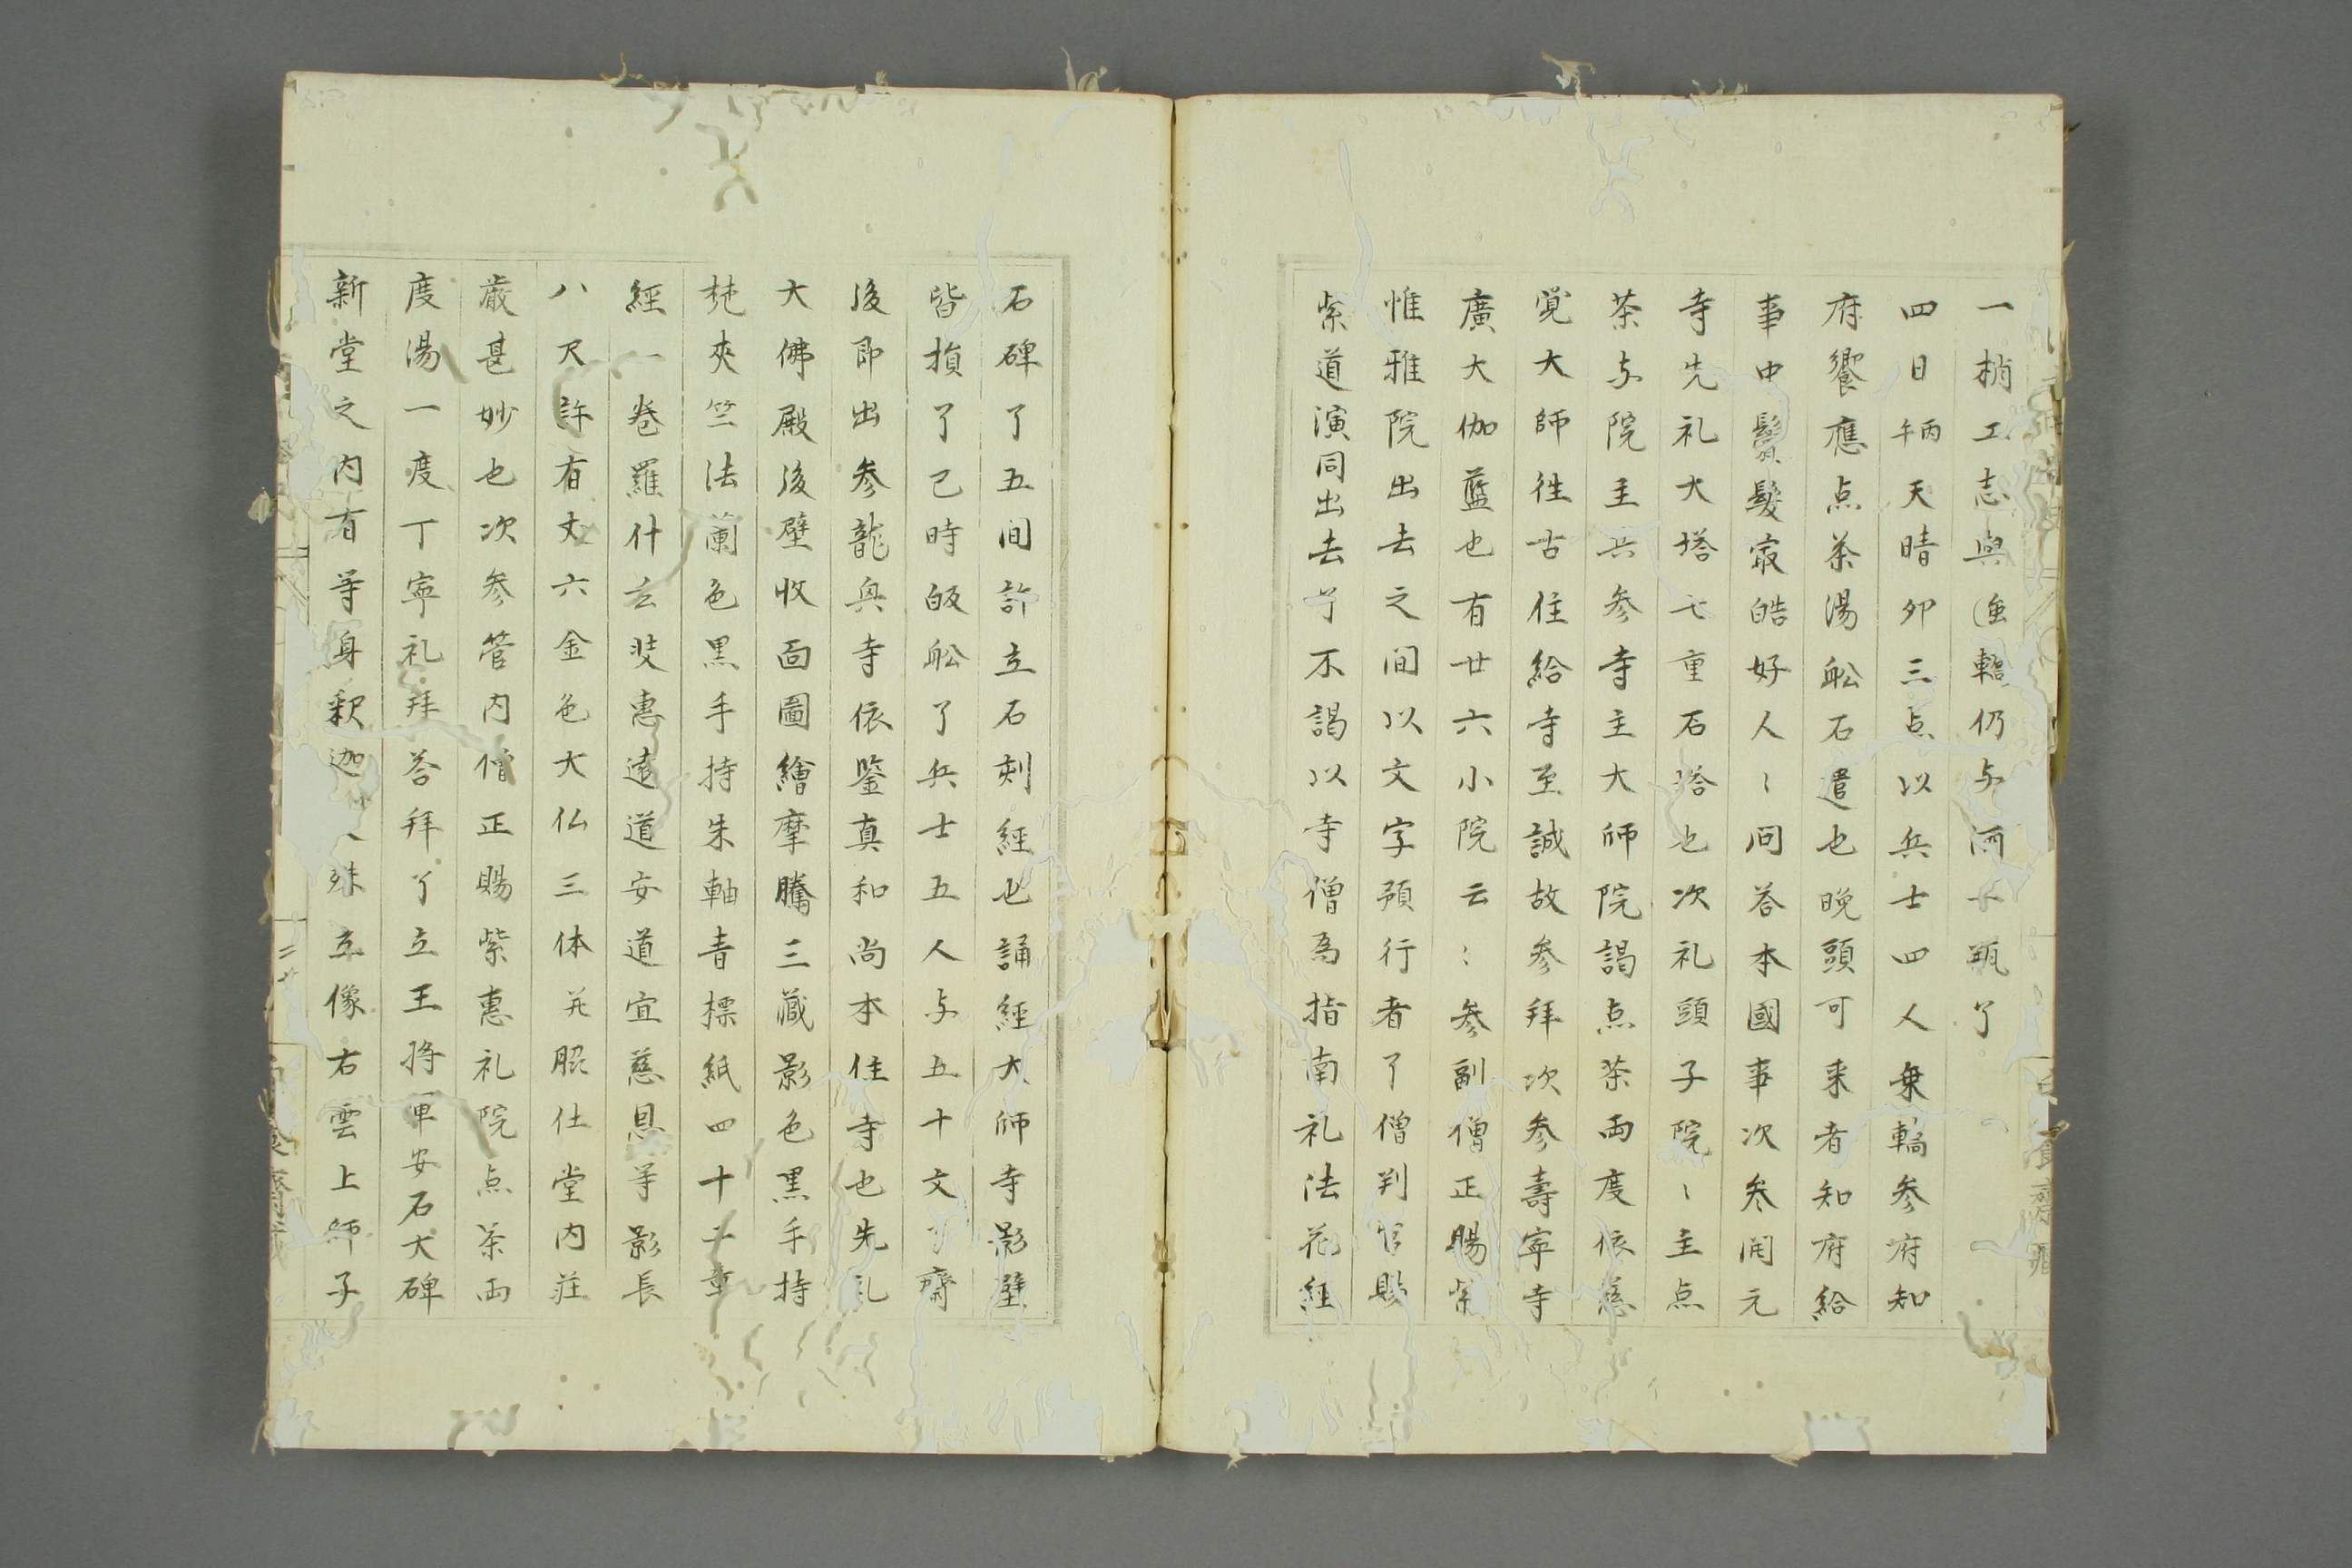 一梢工志與強輻仍与酒一瓶了
四日丙午天晴卯三点以兵士四人乗轎参府知
府饗應点茶湯舩石遣也晩頭可来者知府給
事中鬢髮寂皓好人〻問答本國事次参開元
寺先礼大塔七重石塔也次礼頭子院〻主点
茶与院主共参寺主大師院謁点茶両度依慈
覚大師徃古住給寺至誠故参拜次参壽寧寺
廣大伽藍也有廿六小院云〻参副僧正賜紫
惟雅院出去之间以文字預行者了僧判官賜
紫道演同出去了不謁以寺僧為指南礼法花経
石碑了五间許立石刻經也誦經大師寺影壁
皆損了已時皈舩了兵士五人与五十文了齋
後即出参龍興寺依鑒真和尚本住寺也先礼
大佛殿後壁收面圖繪摩騰三藏影色黒手持
梵夾竺法蘭色黒手持朱軸青標紙四十二章
經一卷羅什玄奘惠遠道安道宣慈恩等影長
八尺許有丈六金色大仏三体并脇仕堂内荘
嚴甚妙也次参管内僧正賜紫惠礼院点茶両
度湯一度丁寧礼拜答拜了立王將軍安石大碑
新堂之内有等身釈迦文殊立像右雲上師子